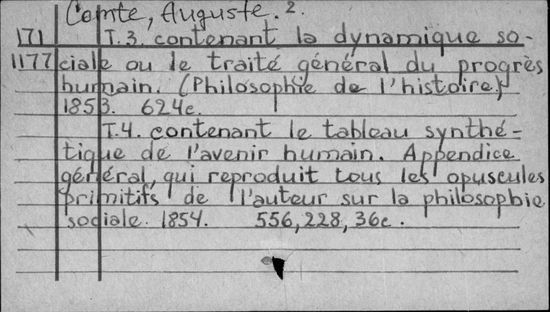 Comte, Auguste. 2.
171 T.3. contenant la dynamique so-
1177 ciale ou le traité général du progrès
humain. (Philosophie de l'histoire)
1853. 624c.
T.4. contenant le tableau synthé-
tique de l'avenir humain. Appendice
général, qui reproduit tous les opuscules
primitifs de l'auteur sur la philosophie
sociale. 1854. 556, 228, 36c.